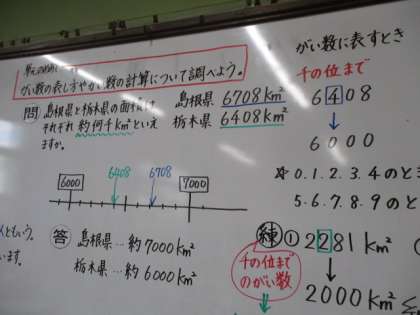 がい数の表し方やがい数の計算について調べよう。
問 島根県と栃木県の面積は
それぞれ約何千km²といえ
ますか。
島根県 6708km²
栃木県 6408km²
6408 6708
6000 7000
答 島根県…約7000km²
栃木県…約6000km²
がい数に表すとき
千の位まで
6408
↓
6000
☆ 0.1.2.3.4のと
5.6.7.8.9のと
練 ① 2281km²
↓
2000km²
千の位まで
のがい数